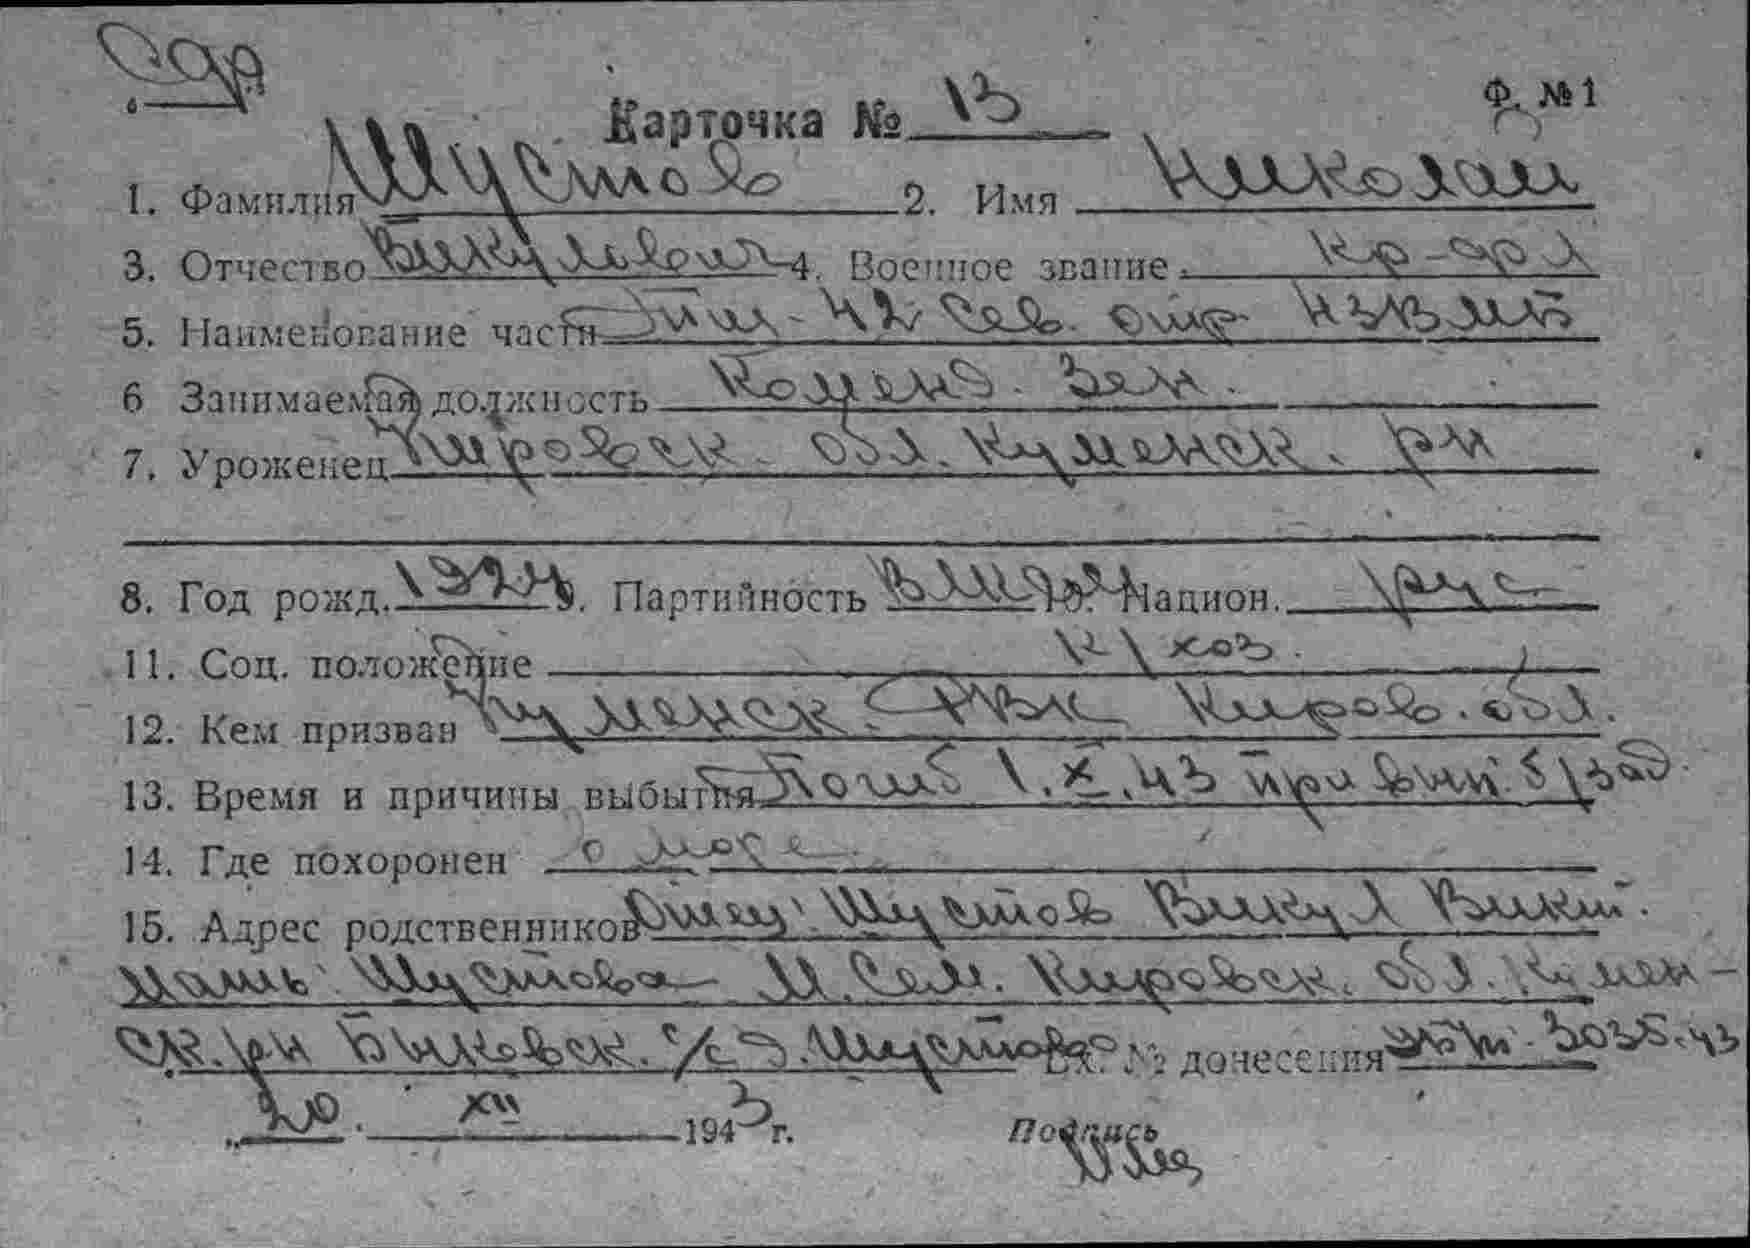 Карточка № 13 Ф. №1
1. Фамилия Шустов 2. Имя Николай
3. Отчество Викулович 4. Военное звание кр-фл
5. Наименование части тщ-42 Сев. отр. ЧЗВМБ
6 Занимаемая должность Коменд. Зен.
7. Уроженец Кировск. обл. Куменск. рн
8. Год рожд. 1924 9. Партийность влксм 10. Национ. рус
11. Соц. положение к/хоз.
12. Кем призван Куменск. РВК Киров. обл.
13. Время и причины выбытия Погиб 1.X.43 при вып. б/зад.
14. Где похоронен в море
15. Адрес родственников Отец: Шустов Викул Викт.
Мать: Шустова М. Сем. Кировск. обл. Кумен-
ск. рн Быковск. с/с д. Шустово Вх. № донесения 3035.43
20. XII 1943 г. Подпись